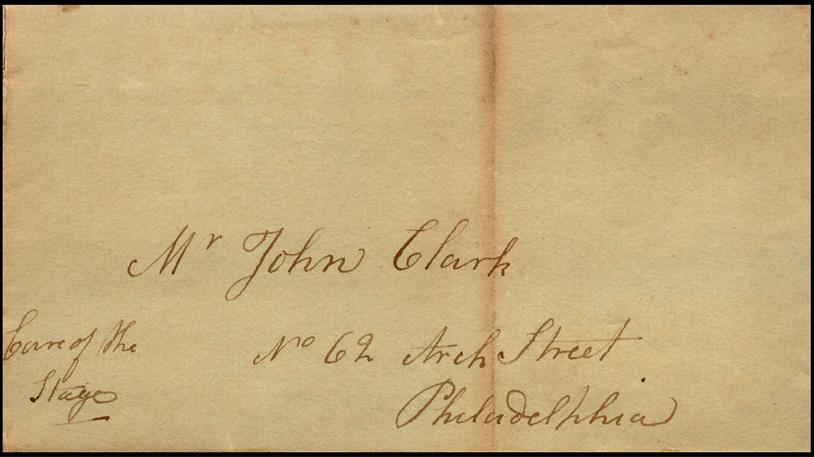 Mr John Clark
No 62 Arch Street
Philadelphia
Care of the
Stage